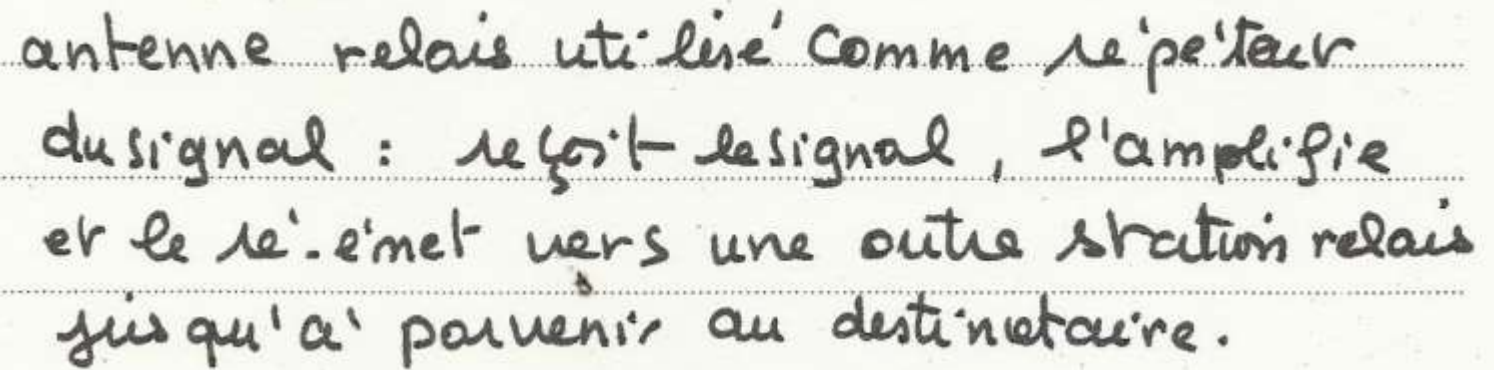 antenne relais utilisé comme répéteur
du signal : reçoit le signal, l'amplifie
et le ré-émet vers une autre station relais
jusqu'à parvenir au destinataire.